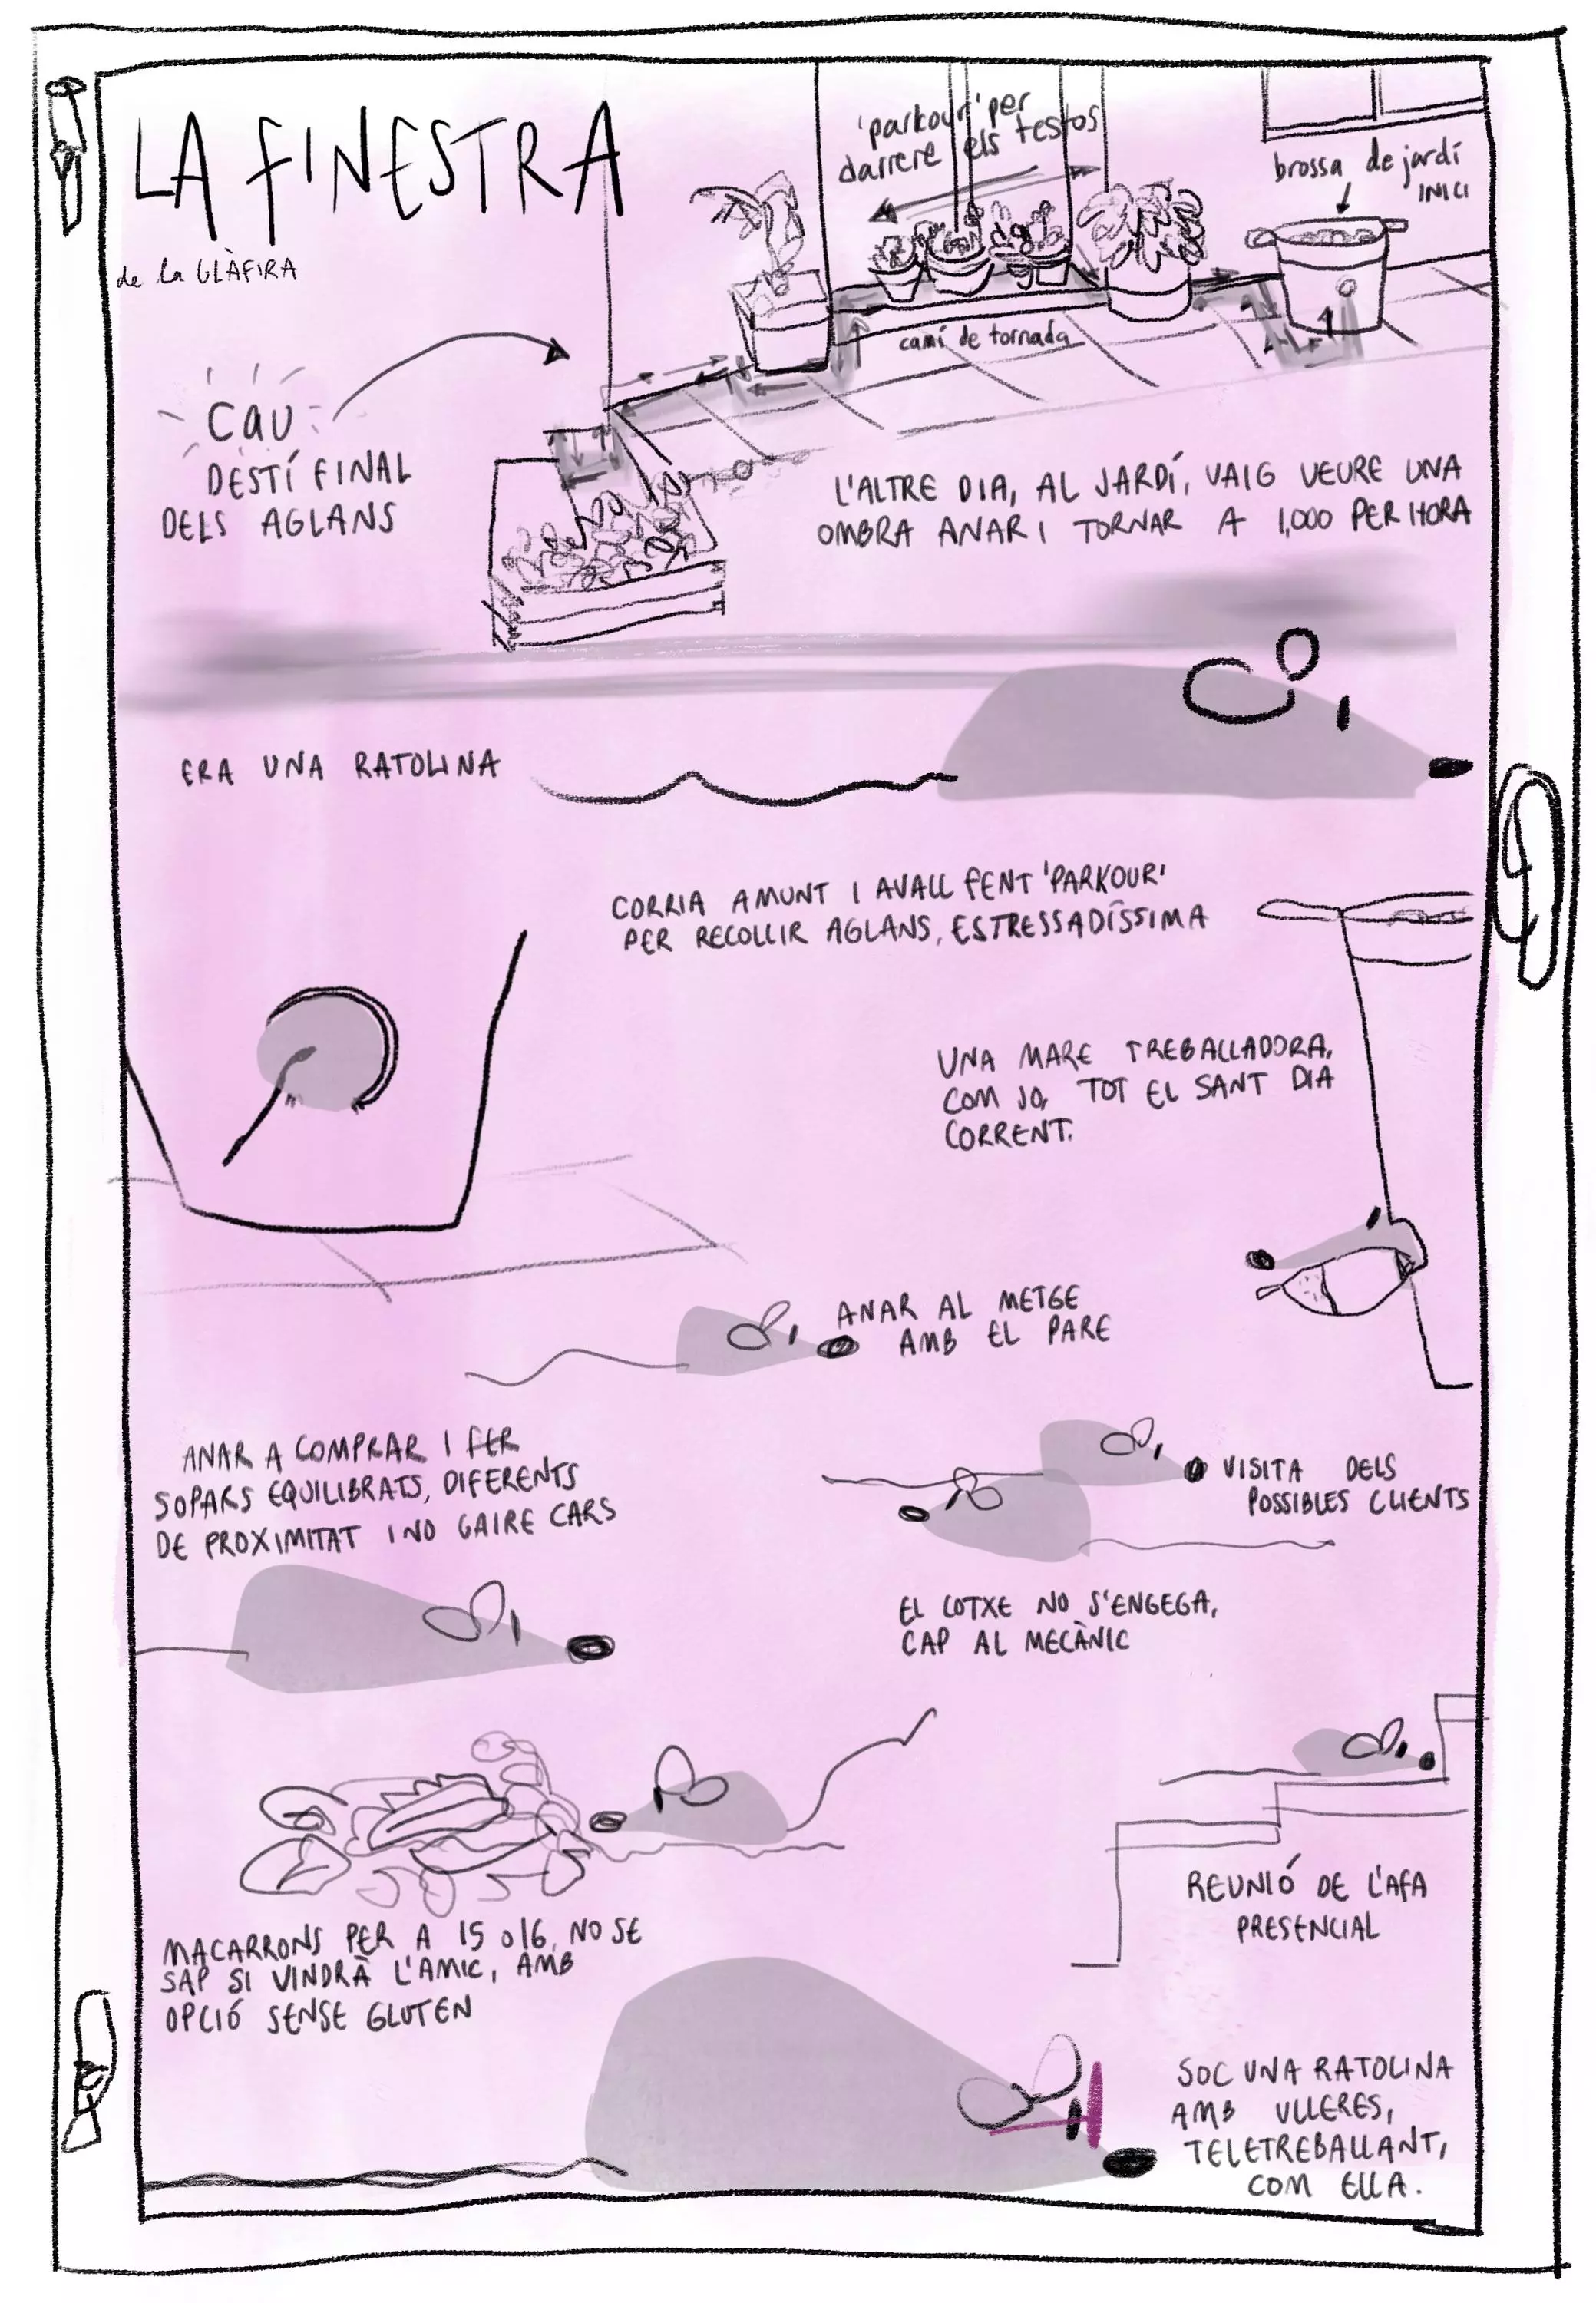 LA FINESTRA
de la GLÀFIRA
'parkour' per
darrere els testos
brossa de jardí
INICI
camí de tornada
CAU
DESTÍ FINAL
DELS AGLANS
L'ALTRE DIA, AL JARDÍ, VAIG VEURE UNA
OMBRA ANAR I TORNAR A 1,000 PER HORA
ERA UNA RATOLINA
CORRIA AMUNT I AVALL FENT 'PARKOUR'
PER RECOLLIR AGLANS, ESTRESSADÍSSIMA
UNA MARE TREBALLADORA,
COM JO, TOT EL SANT DIA
CORRENT.
ANAR AL METGE
AMB EL PARE
ANAR A COMPRAR I FER
SOPARS EQUILIBRATS, DIFERENTS
DE PROXIMITAT I NO GAIRE CARS
VISITA DELS
POSSIBLES CLIENTS
EL COTXE NO S'ENGEGA,
CAP AL MECÀNIC
REUNIÓ DE L'AFA
PRESENCIAL
MACARRONS PER A 15 o 16, NO SE
SAP SI VINDRÀ L'AMIC, AMB
OPCIÓ SENSE GLUTEN
SOC UNA RATOLINA
AMB ULLERES,
TELETREBALLANT,
COM ELLA.